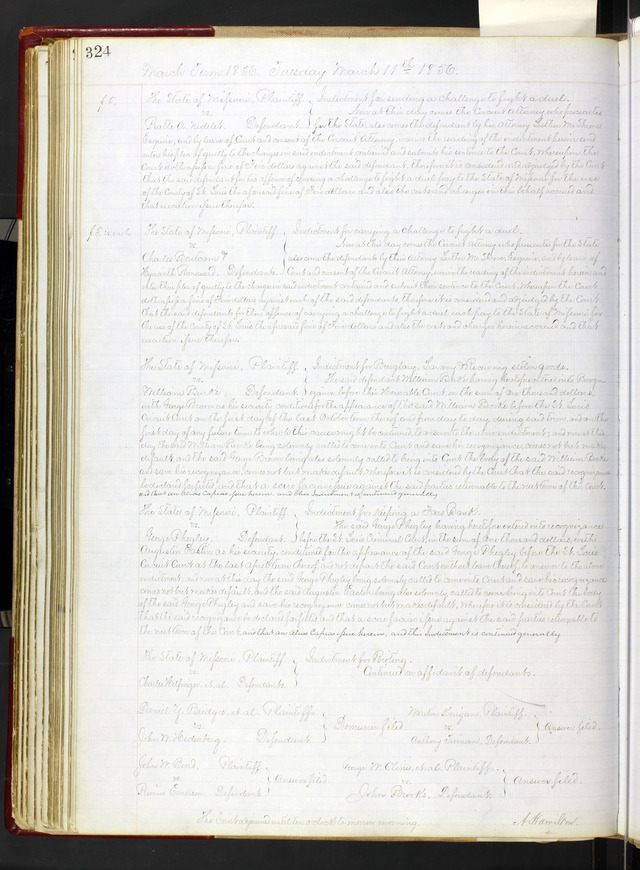 324
March Term 1856. Tuesday March 11th 1856.
The State of Missouri, Plaintiff
Indictment for sending a challenge to fight a duel.
vs.
Now at this day comes the Circuit Attorney who prosecutes
Defendant.
for the State, also comes the defendant by his Attorney Luther M. Shreve
Esquire, and by leave of Court and consent of the Circuit Attorney waives the reading of the indictment herein and
enters his plea of guilty to the charge in said indictment contained and submits his sentence to the Court. Wherefore the
Court doth assess a fine of Five dollars against the said defendant, therefore it is considered and adjudged by the Court
that the said defendant for his offence of sending a challenge to fight a duel pay to the State of Missouri for the use
of the County of St. Louis the aforesaid fine of Five dollars and also the costs and charges in this behalf accrued and
that execution issue therefor.
The State of Missouri, Plaintiff
Indictment for carrying a challenge to fight a duel.
vs.
Now at this day comes the Circuit Attorney who prosecutes for the State
Charles &
also come the defendants by their Attorney Luther M. Shreve, Esquire, and by leave of
Defendants.
Court and consent of the Circuit Attorney waive the reading of the indictment herein and
enter their plea of guilty to the charge in said indictment contained and submit their sentence to the Court. Wherefore the Court
doth assess a fine of Five dollars against each of the said defendants, therefore it is considered and adjudged by the Court
that the said defendants for their offence of carrying a challenge to fight a duel each pay to the State of Missouri for
the use of the County of St. Louis the aforesaid fine of Five dollars and also the costs and charges herein accrued and that
execution issue therefor.
The State of Missouri, Plaintiff
Indictment for Burglary, Larceny & Receiving stolen goods.
vs.
The said defendant William Banks having heretofore entered into Recog-
William Banks, Defendant.
nizance before this Honorable Court in the sum of one thousand dollars
with George Brown as his security conditioned for the appearance of the said William Banks before the St. Louis
Circuit Court on the first day of the last October term thereof and from day to day during said term, and on the
first day of any future term to which this cause might be continued to answer to the above indictment, and now at this
day the said William Banks being solemnly called to come into Court and save his recognizance comes not but makes
default, and the said George Brown being also solemnly called to bring into Court the body of the said William Banks
and save his recognizance, comes not but makes default, Wherefore it is considered by the Court that the said recognizance
be declared forfeited and that a scire facias issue against the said parties returnable to the next term of this Court.
and that an alias Capias issue herein, and this Indictment is continued generally
The State of Missouri, Plaintiff
Indictment for keeping a Faro Bank.
vs.
The said George Phegley having heretofore entered into recognizance
George Phegley, Defendant.
before the St. Louis Criminal Court in the sum of One thousand dollars, with
Augustin Easton as his security, conditioned for the appearance of the said George Phegley before the St. Louis
Circuit Court at the last April term thereof and not depart the said Court without leave thereof, to answer to the above
indictment, and now at this day the said George Phegley being solemnly called to come into Court and save his recognizance
comes not but makes default, and the said Augustin Easton being also solemnly called to come bring into Court the body
of the said George Phegley and save his recognizance comes not but makes default, Wherefore it is considered by the Court
that the said recognizance be declared forfeited and that a scire facias issue against the said parties returnable to
the next term of this Court and that an alias Capias issue herein, and this Indictment is continued generally
The State of Missouri, Plaintiff
Indictment for Rioting.
vs.
Continued on affidavit of defendants.
Charles et al. Defendants.
Daniel Y. Bridges, et al. Plaintiffs
vs.
John W. Defendant
Demurrer filed.
Plaintiff
vs.
Anthony Defendant.
Answer filed.
John W. Plaintiff
vs.
Defendant
Answer filed
George W. Cline, et al. Plaintiffs.
vs.
John Brooks, Defendant.
Answer filed.
The Court adjourned until ten o'clock to morrow morning.
A. Hamilton.